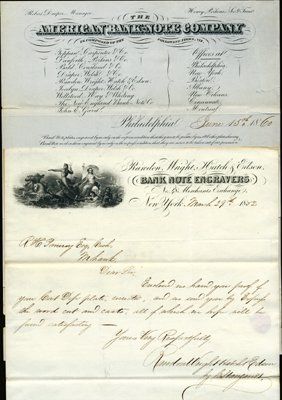 Robert Draper, Manager
THE
AMERICAN BANK NOTE COMPANY
Toppan, Carpenter & Co.
Danforth, Perkins & Co.
Bald, Cousland & Co.
Draper, Welsh & Co.
Rawdon, Wright, Hatch & Edson.
Jocelyn, Draper, Welsh & Co.
Wellstood, Hay & Whiting.
The New England Bank Note Co.
John E. Gavit.
Offices at
Philadelphia,
New York,
Boston,
Albany,
New Orleans,
Cincinnati,
Montreal.
Philadelphia June 15th 1860
Rawdon, Wright, Hatch & Edson,
BANK NOTE ENGRAVERS
Merchants Exchange,
New York, March 29th 1852
R H Pomeroy Esq Cash.
Mohawk
Dear Sir,
Enclosed we hand you proof of
your Cert Dep plate, and we send you by Express
the wood cut and casts, all of which we hope will be
found satisfactory —
Yours Very Respectfully
Rawdon Wright Hatch & Edson